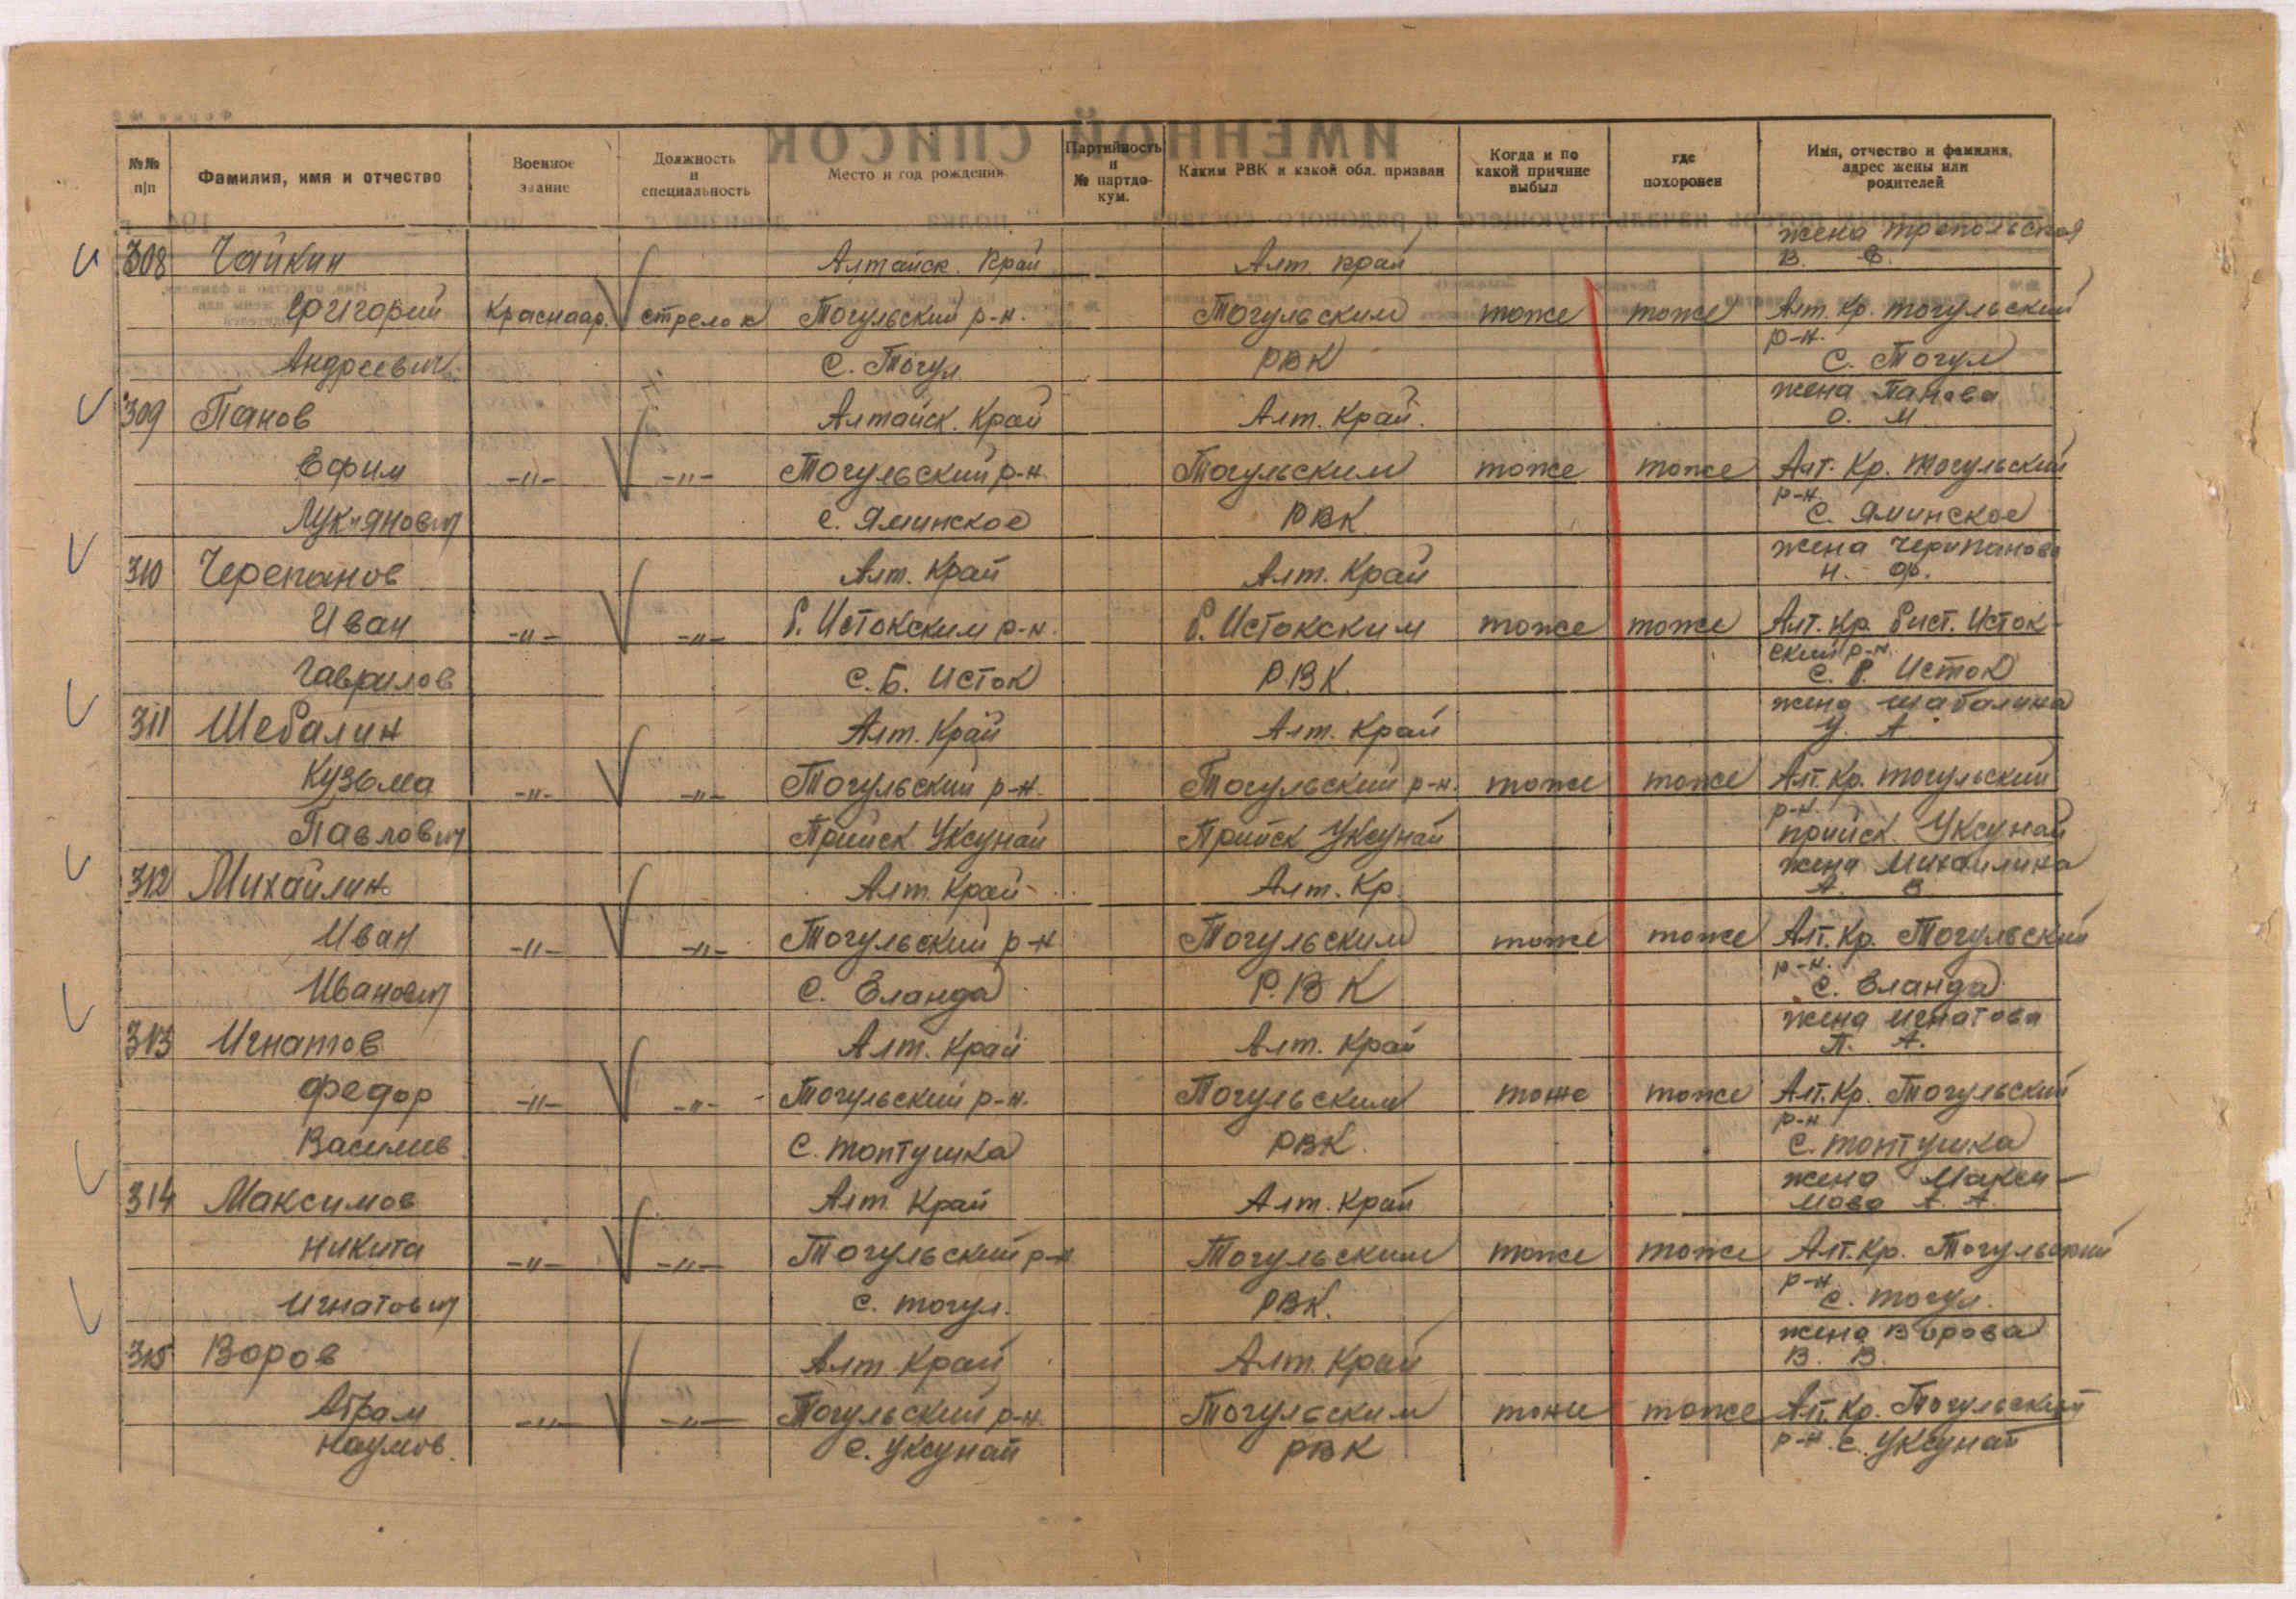 №№ п/п Фамилия, имя и отчество Военное звание Должность и специальность Место и год рождения Партийность и № партдокум. Каким РВК и какой обл. призван Когда и по какой причине выбыл где похоронен Имя, отчество и фамилия, адрес жены или родителей
жена Трепольская
308 Чайкин Алтайск. Край Алт. край В. Ф.
Григорий Краснаар. стрелок Тогульский р-н. Тогульским тоже тоже Алт. Кр. Тогульский
р-н.
Андреевич С. Тогул РВК С. Тогул
жена Панова
309 Панов Алтайск. Край Алт. Край. О. М.
Ефим -"- -"- Тогульский р-н. Тогульским тоже тоже Алт. Кр. Тогульский
р-н.
Лукиянович с. Яминское РВК С. Яминское
жена Черепанова
310 Черепанов Алт. Край Алт. Край Н. Ф.
Иван -"- -"- Б. Истокским р-н. Б. Истокским тоже тоже Алт. Кр. Бист. Исток-
ский р-н.
Гаврилов С. Б. Исток РВК. С. Б. Исток
жена Шабалина
311 Шебалин Алт. Край Алт. Край У. А.
Кузьма -"- -"- Тогульский р-н. Тогульский р-н. тоже тоже Алт. Кр. Тогульский
р-н.
Павлович Прииск Уксунай Прииск Уксунай прииск Уксунай
жена Михайлина
312 Михайлин. Алт. Край Алт. Кр. А. В.
Иван -"- -"- Тогульский р-н Тогульским тоже тоже Алт. Кр. Тогульский
р-н.
Иванович С. Еланда Р.ВК С. Еланда
жена Игнатова
313 Игнатов Алт. Край Алт. Край П. А.
Федор -"- -"- Тогульский р-н. Тогульским тоже тоже Алт. Кр. Тогульский
р-н
Василев С. Топтушка РВК. С. Топтушка
жена Макси-
314 Максимов Алт. Край Алт. Край мова А. А.
Никита -"- -"- Тогульский р-н Тогульским тоже тоже Алт. Кр. Тогульский
р-н
Игнатович с. Тогул. РВК. С. Тогул.
жена Ворова
315 Воров Алт. Край Алт. Край В. В.
Абрам -"- -"- Тогульский р-н. Тогульским тоже тоже Алт. Кр. Тогульский
Наумов. С. Уксунай РВК р-н. с. Уксунай